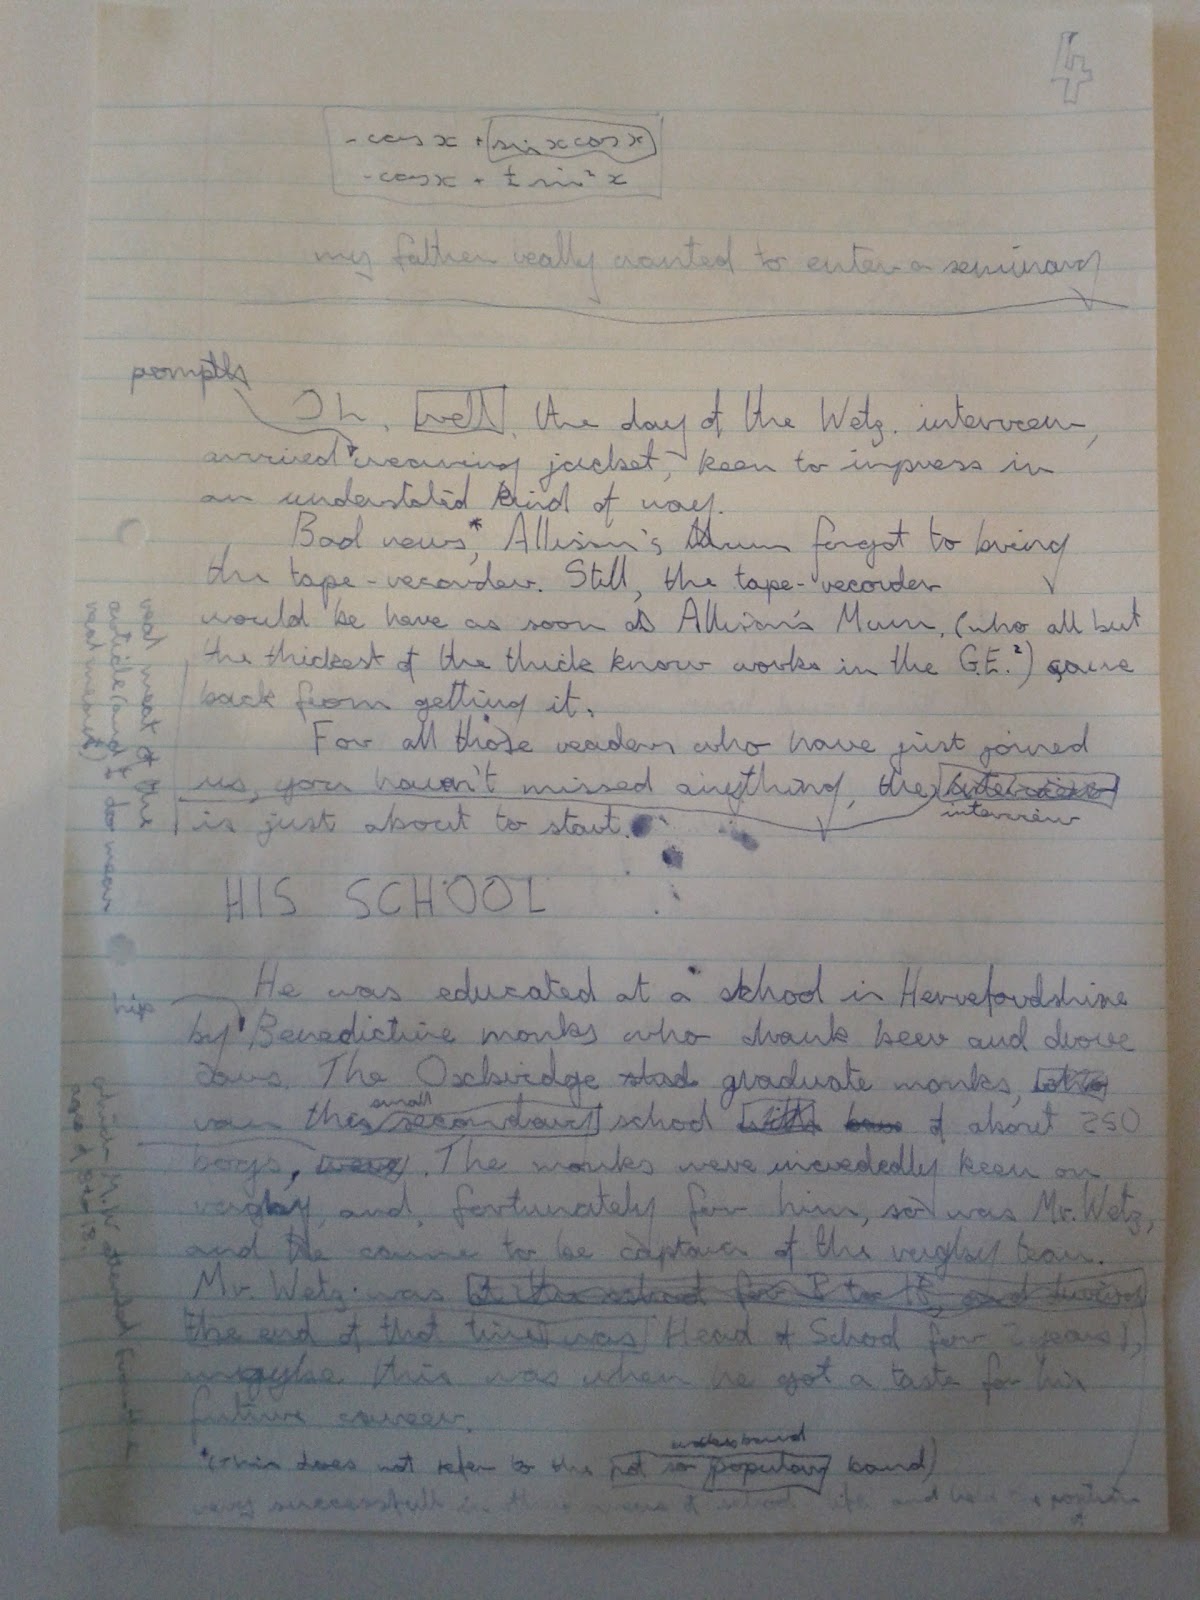 4
-cos x + sin x cos x
-cos x + ½ sin² x
my father really wanted to enter a seminary
promptly
Oh, well, the day of the Wetz. interview,
arrived wearing jacket, keen to impress in
an understated kind of way.
Bad news*, Allison's Mum forgot to bring
the tape-recorder. Still, the tape-recorder
would be here as soon as Allison's Mum, (who all but
the thickest of the thick know works in the G.E.²) came
back from getting it.
For all those readers who have just joined
us, you haven't missed anything, the interview
interview
is just about to start.
real meat of the
article (and I do mean
real meat)
HIS SCHOOL
He was educated at a school in Herrefordshire
by Benedictine monks who drank beer and drove
cars. The Oxbridge graduate monks,
small
ran this secondary school with of about 250
boys, were. The monks were incrededly keen on
rugby, and, fortunately for him, so was Mr. Wetz,
and he came to be captain of the rugby team.
Mr. Wetz was at the school for 8 to 18, and during
the end of that time was Head of School for 2 years,
maybe this was when he got a taste for his
future career.
hip
which M.W attended from the
age of 8 to 18.
underbound
*(this does not refer to the not so popular band)
very successfull in the of school life and position
of